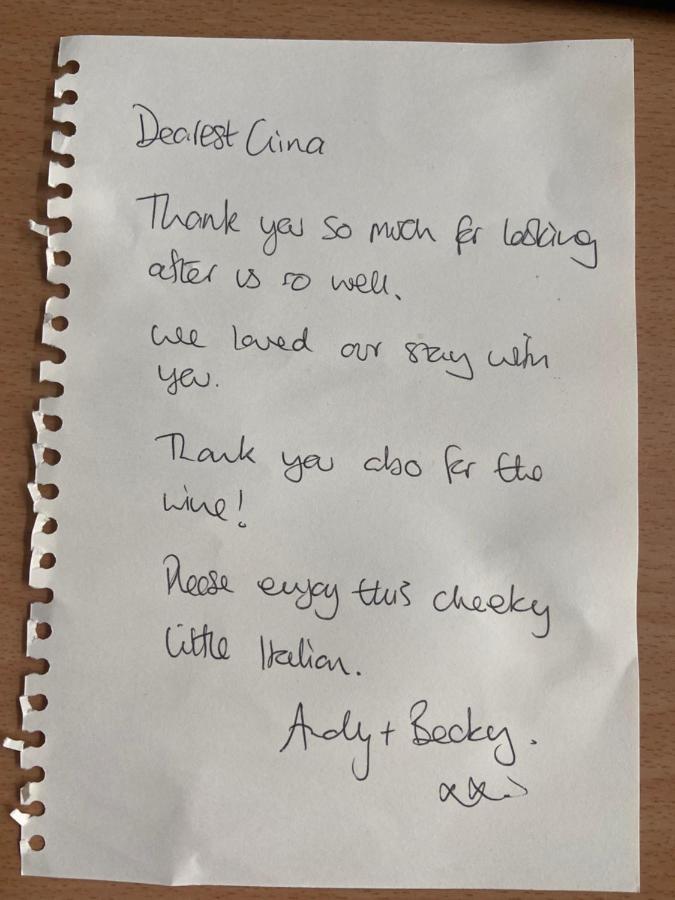 Dearest Gina
Thank you so much for looking
after us so well.
We loved our stay with
you.
Thank you also for the
wine!
Please enjoy this cheeky
little Italian.
Andy + Becky.
xx